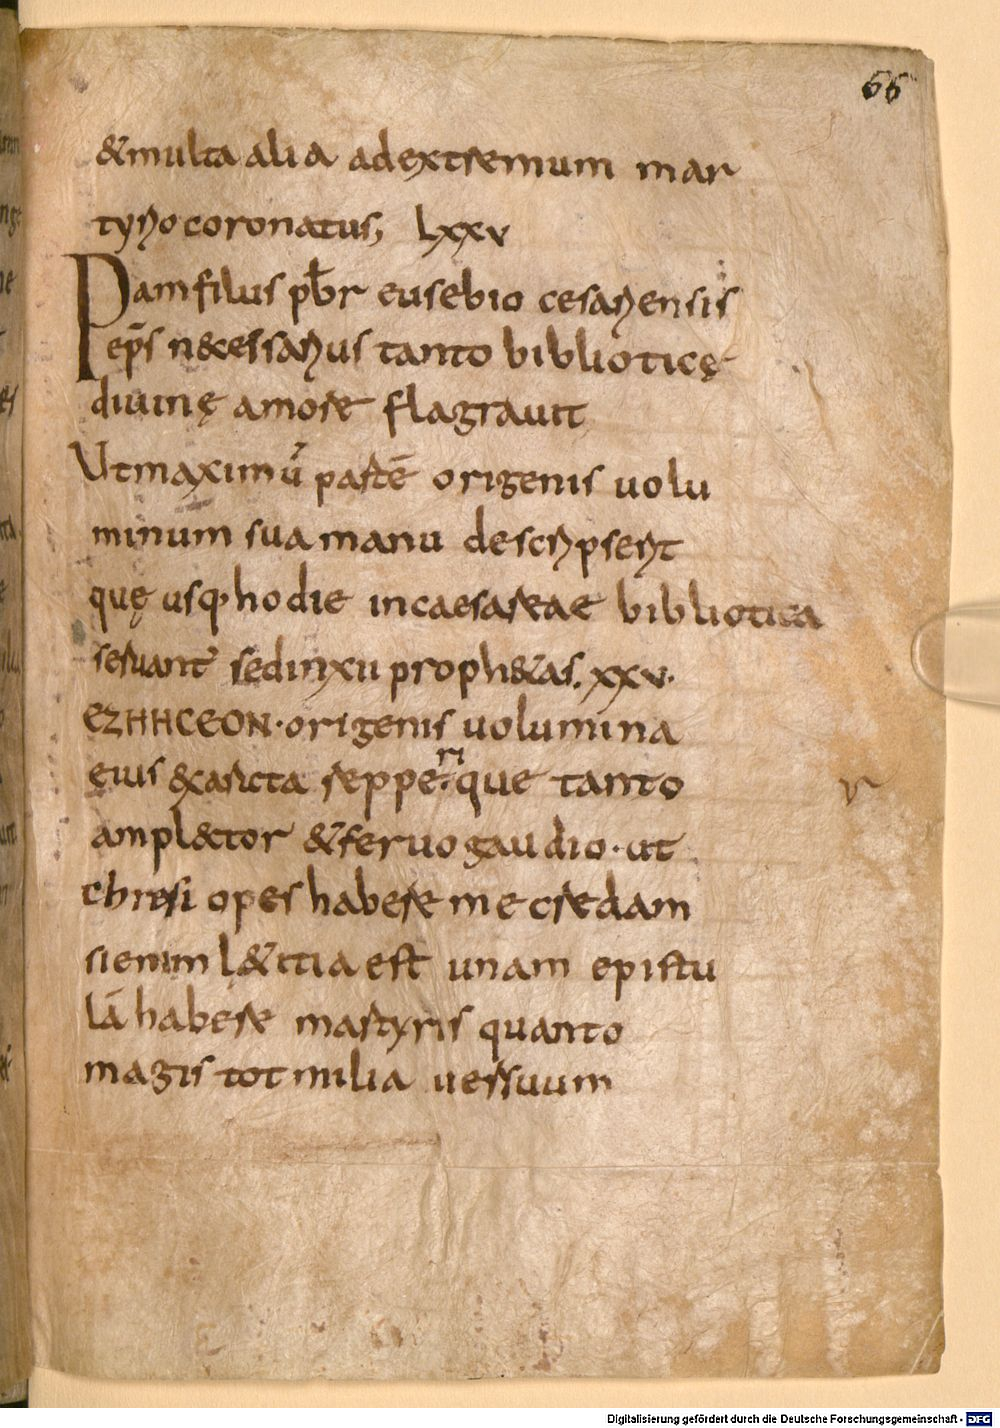 66
&multa alia adextremum mar
tyrio coronatus; lxxv
Pamfilus pbr eusebio cesariensis
eps n&cessarius tanto biblioticę
diuinę amore flagrauit
Ut maximū partē origenis uolu
minum sua manu descripserit
quę usq; hodie incaesareae bibliotica
seruant sed inxii proph&as. xxv.
EZHHCEON · origenis uolumina
ęius &xarcta repperi que tanto
ampl&tor &feruo gaudio · ut
chresi opes habere me credam
si enim l&itia est unam epistu
lā habere martyris quanto
magis tot milia uersuum
Digitalisierung gefördert durch die Deutsche Forschungsgemeinschaft - DFG